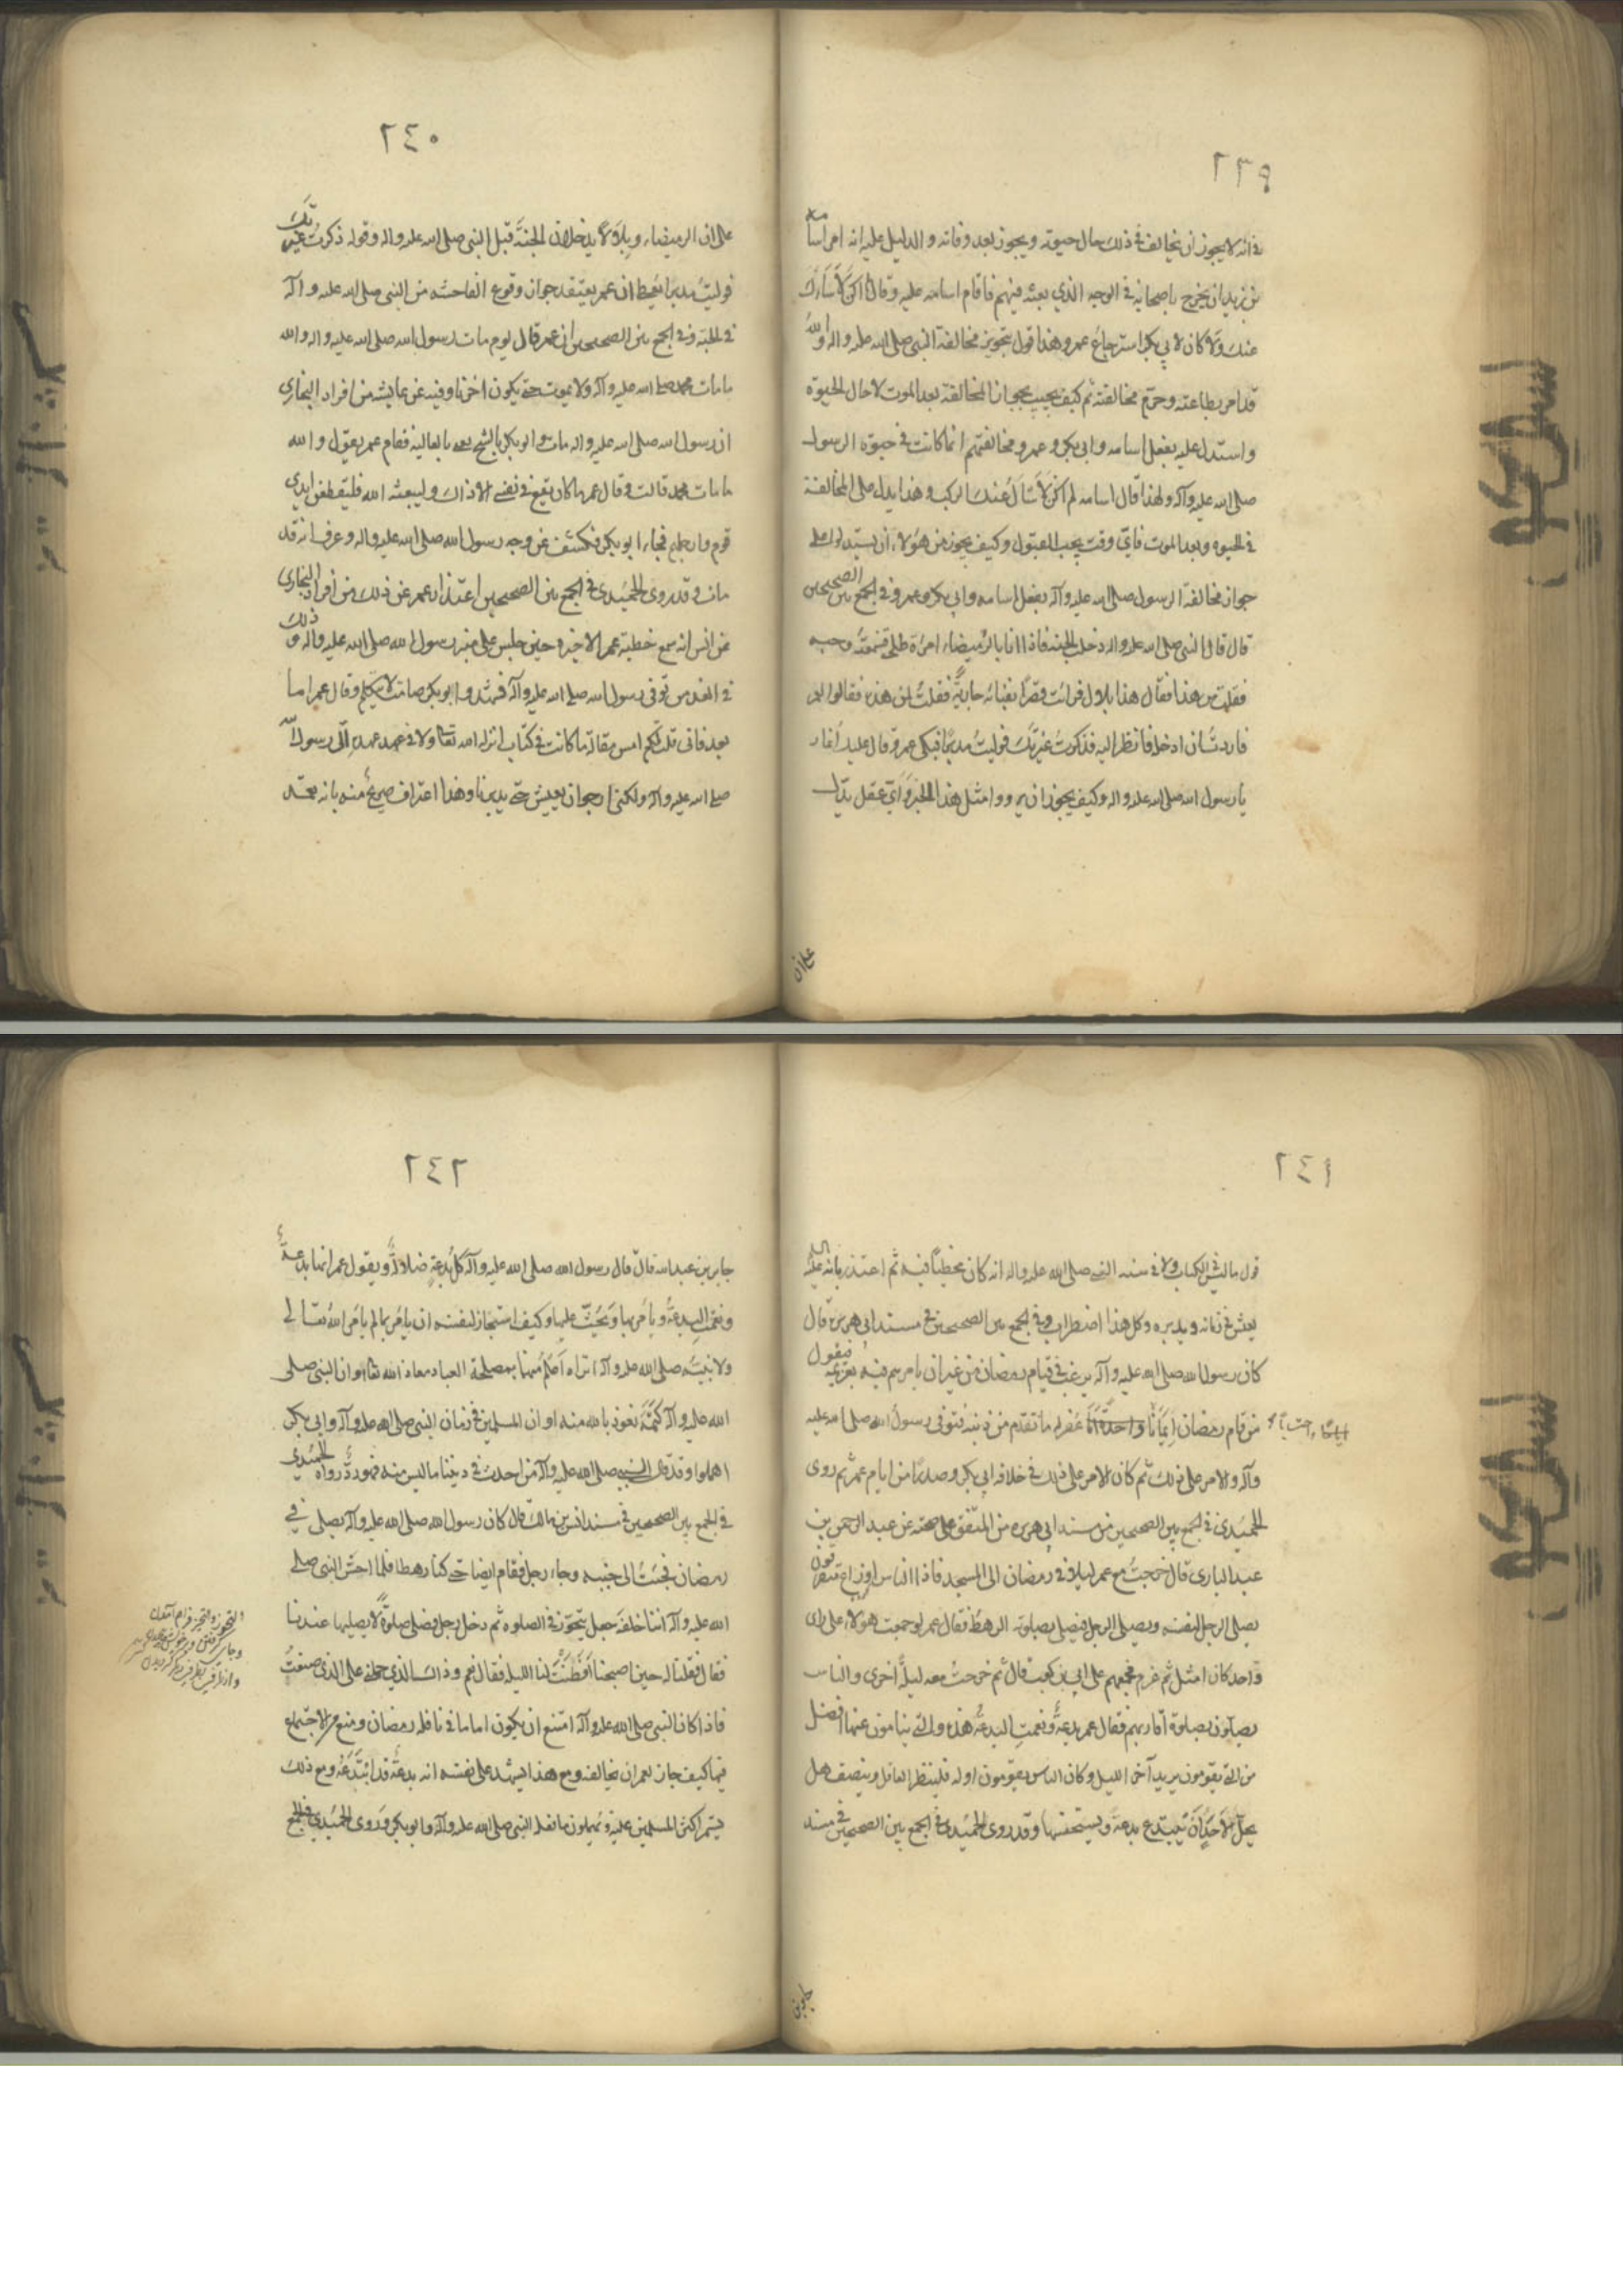 ٢٣٩
في انه لا يجوز ان يخالف في ذلك حال حيوته ويجوز بعد وفاته و الدليل عليه انه امر اسامة
بن زيد ان يخرج باصحابه في الوجه الذي بعثه فيهم فاقام اسامه عليه وقال لم اكن لاسأل
عنك وَلا كان لابي بكر استرجاع عمر وهذا قول بتجويز مخالفة النبي صلى الله عليه واله والله
قد امر بطاعته وحرّم مخالفته ثم كيف يجيب بجواز المخالفة بعد الموت لا حال الحيوة
واستدل عليه بفعل اسامه وابي بكر و عمر و مخالفتهم انما كانت في حيوة الرسول
صلى الله عليه وآله ولهذا قال اسامه لم اكن لاسأل عنك الركب وهذا يدل على المخالفة
في الحيوه وبعد الموت فايّ وقت يجب القبول وكيف يجوز من هؤلاء ان يستدلوا على
جواز مخالفة الرسول صلى الله عليه وآله بفعل اسامه وابي بكر وعمر وفي الجمع بين الصحيحين
قال قال النبي صلى الله عليه واله دخلت الجنه فاذا انا بالرميضاء امرءة طلحه فسمعت وجبه
فقلت من هذا فقال هذا بلال فرائت قصرًا بفنائه جاريةٌ فقلتُ لمن هذه فقالوا لعمر
فاردت ان ادخله فانظر اليه فذكرتُ غيرتك فوليت مدبرًا فبكى عمر وقال عليك أغار
يا رسول الله صلى الله عليه واله وكيف يجوز ان يرووا مثل هذا الخبر وَايّ عقل يدلّ
على ان
٢٤٠
على ان الرميضاء وبلالا يدخلان الجنة قبل النبي صلى الله عليه واله وقوله ذكرتُ غيرتك
فوليتُ مدبرا يعطي ان عمر يعتقد جواز وقوع الفاحشه من النبي صلى الله عليه و آله
في الجنة وفي الجمع بين الصحيحين ان عمر قال يوم مات رسول الله صلى الله عليه واله والله
ما مات محمد صلى الله عليه وآله ولا يموت حتى يكون اخرنا وفيه عن عايشه من افراد البخاري
ان رسول الله صلى الله عليه واله مات وابو بكر بالسنح يعني بالعاليه فقام عمر يقول و الله
ما مات محمد قالت وقال عمر ما كان يقع في نفسي الا ذاك وليبعثه الله فليقطعن ايدي
قوم وارجلهم فجاء ابو بكر فكشف عن وجه رسول الله صلى الله عليه واله وعرف انه قد
مات و قد روى الحُميدي في الجمع بين الصحيحين اعتذار عمر عن ذلك من افراد البخاري
عن انس انه سمع خطبة عمر الاخيرة حين جلس على منبر رسول الله صلى الله عليه واله و ذلك
في الغد من توفى رسول الله صلى الله عليه وآله فتشهد وابو بكر صامت لا يتكلم وقال عمر اما
بعد فاني قلت لكم امس مقالة ما كانت في كتاب انزله الله تعالى ولا في عهد عهده اليّ رسول الله
صلى الله عليه وآله ولكني ارجو ان يعيش حتى يدبرنا وهذا اعتراف صريح منه بانه تعمّد
٢٤١
قول ما ليس في الكتاب ولا في سنة النبي صلى الله عليه واله انه كان مخطئاً فيه ثم اعتذر بانه
يعش في زمانه ويدبره وكل هذا اضطراب وفي الجمع بين الصحيحين في مسند ابي هريرة قال
كان رسول الله صلى الله عليه وآله يرغب في قيام رمضان من غير ان يامرهم فيه بعزيمة فيقول
من قام رمضان ايمانًا و غفر له ما تقدم من ذنبه فتوفى رسول الله صلى الله عليه
ايمانًا واحتسابًا
وآله والامر على ذلك ثم كان الامر على ذلك في خلافه ابي بكر وصدرًا من ايام عمر ثم روى
الحميدي في الجمع بين الصحيحين من مسند ابي هريره من المتفق على صحته عن عبد الرحمن بن
عبد الباري قال خرجتُ مع عمر ليلا في رمضان الى المسجد فاذا الناس اوزاع متفرقون
يصلي الرجل لنفسه ويصلي الرجل فيصلي بصلوته الرهط فقال عمر لو جمعت هؤلاء على قارى
واحد كان امثل ثم عزم فجمعهم على ابي بن كعب قال ثم خرجتُ معه ليلةً اخرى والناس
يصلون بصلوة قاريهم فقال عمر بدعةٌ ونعمت البدعةُ هذه والتي ينامون عنها افضل
من التي يقومون يريد آخر الليل وكان الناس يقومون اوله فلينظر العاقل وينصف هل
يحلّ لاحدٍ أن يَبتدع بدعةً ويستحسنها وقد روى الحميدي في الجمع بين الصحيحين في مسند
جابر بن
٢٤٢
جابر بن عبد الله قال قال رسول الله صلى الله عليه وآله كل بدعةٍ ضلالةٌ ويقول عمر انها بدعةٌ
ونعمت البدعةُ ويامُر بها وَيَحُثّ عليها وكيف استجاز لنفسه ان يامُر بما لم يامُر الله تعالى
ولا نبيّه صلى الله عليه وآله اتراه اَعلمُ منهما بمصلحة العباد معاذ الله تعالى او ان النبي صلى
الله عليه وآله كتمَهُ نعوذ بالله منه او ان المسلمين في زمان النبي صلى الله عليه وآله وابي بكر
اهملوا وقد قال النبي صلى الله عليه وآله من احدث في ديننا ما ليس منه فهو ردٌّ رواه الحُميدي
في الجمع بين الصحيحين في مسند انس بن مالك قال كان رسول الله صلى الله عليه وآله يصلي في
رمضان فجئتُ الى جنبه وجاء رجل فقام ايضا حتى كنا رهطا فلما احسّ النبي صلى
الله عليه وآله اننا خلفه جعل يتجوّز في الصلوة ثم دخل رحله فصلى صلوةً لا يصليها عندنا
فقال فقلنا له حين اصبحنا اَفطَنتَ لنا الليلة فقال نعم وذاك الذي حملني على الذي صنعتُ
فاذا كان النبي صلى الله عليه وآله امتنع ان يكون اماما في نافلة رمضان ومنع من الاجتماع
فيها كيف جاز لعمر ان يخالفه ومع هذا يشهد على نفسه انه بدعة قد ابتَدَعَهُ ومع ذلك
يستمر اكثر المسلمين عليه وَيهملون ما فعله النبي صلى الله عليه وآله وابو بكر وَروى الحُميدي في الجمع